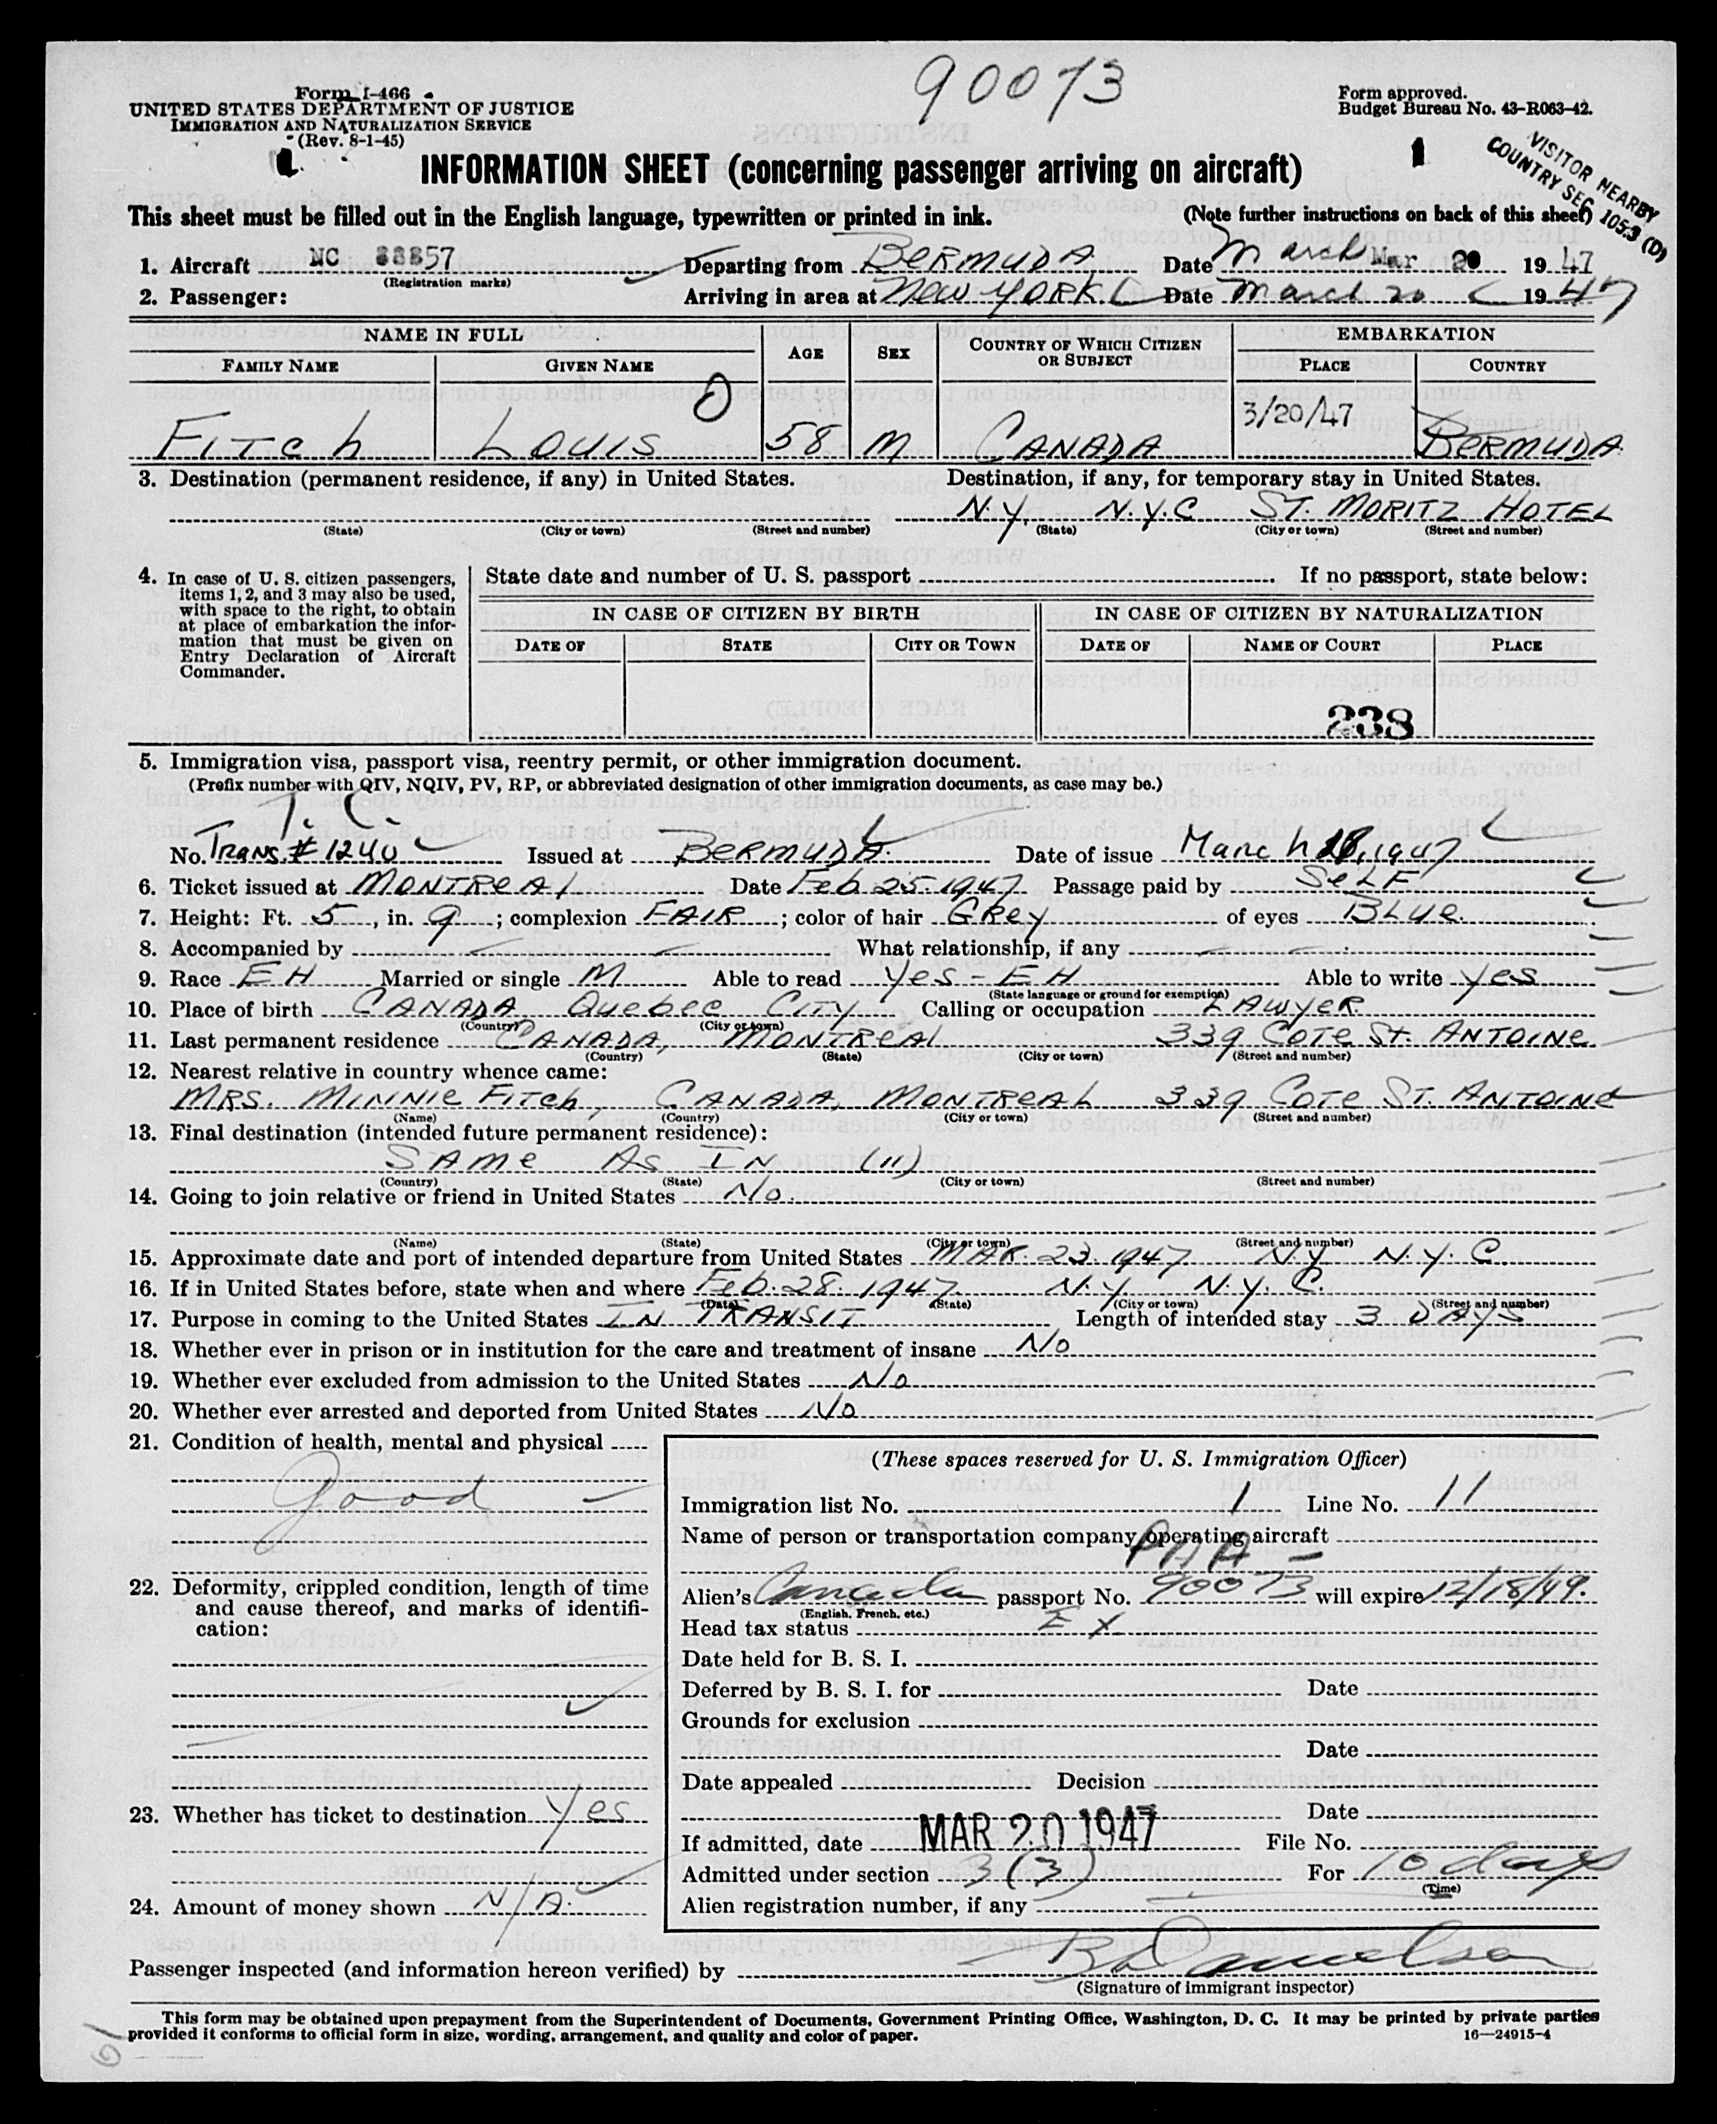 90073
Form I-466
UNITED STATES DEPARTMENT OF JUSTICE
IMMIGRATION AND NATURALIZATION SERVICE
(Rev. 8-1-45)
Form approved.
Budget Bureau No. 43-R063-42.
1
VISITOR NEARBY
COUNTRY SEC 105.3 (D)
INFORMATION SHEET (concerning passenger arriving on aircraft)
This sheet must be filled out in the English language, typewritten or printed in ink. (Note further instructions on back of this sheet)
1. Aircraft NC 88857 Departing from BERMUDA Date March Mar 20 1947
(Registration marks)
2. Passenger: Arriving in area at NEW YORK Date March 20 1947
NAME IN FULL AGE SEX COUNTRY OF WHICH CITIZEN OR SUBJECT EMBARKATION
FAMILY NAME GIVEN NAME PLACE COUNTRY
FITCH LOUIS 58 M CANADA 3/20/47 BERMUDA
3. Destination (permanent residence, if any) in United States. Destination, if any, for temporary stay in United States.
N.Y. N.Y.C ST. MORITZ HOTEL
(State) (City or town) (Street and number) (State) (City or town) (Street and number)
4. In case of U. S. citizen passengers, items 1, 2, and 3 may also be used, with space to the right, to obtain at place of embarkation the information that must be given on Entry Declaration of Aircraft Commander.
State date and number of U. S. passport If no passport, state below:
IN CASE OF CITIZEN BY BIRTH IN CASE OF CITIZEN BY NATURALIZATION
DATE OF STATE CITY OR TOWN DATE OF NAME OF COURT PLACE
238
5. Immigration visa, passport visa, reentry permit, or other immigration document.
(Prefix number with QIV, NQIV, PV, RP, or abbreviated designation of other immigration documents, as case may be.)
T. C.
No. TRANS.# 1240 Issued at BERMUDA. Date of issue March 18, 1947
6. Ticket issued at MONTREAL Date Feb 25. 1947 Passage paid by SELF
7. Height: Ft. 5, in. 9; complexion FAIR; color of hair GREY of eyes BLUE.
8. Accompanied by — — What relationship, if any — —
9. Race EH Married or single M Able to read Yes - EH Able to write Yes
(State language or ground for exemption)
10. Place of birth CANADA Quebec CITY Calling or occupation LAWYER.
(Country) (City or town)
11. Last permanent residence CANADA, MONTREAL 339 COTE St. ANTOINE
(Country) (State) (City or town) (Street and number)
12. Nearest relative in country whence came:
MRS. MINNIE FITCH, CANADA, MONTREAL 339 COTE ST. ANTOINE
(Name) (Country) (City or town) (Street and number)
13. Final destination (intended future permanent residence):
SAME AS IN (11)
(Country) (State) (City or town) (Street and number)
14. Going to join relative or friend in United States No.
(Name) (State) (City or town) (Street and number)
15. Approximate date and port of intended departure from United States MAR. 23. 1947 N.Y N.Y.C.
16. If in United States before, state when and where Feb. 28. 1947. N.Y. N.Y.C.
(Date) (State) (City or town) (Street and number)
17. Purpose in coming to the United States IN TRANSIT Length of intended stay 3 DAYS
18. Whether ever in prison or in institution for the care and treatment of insane No
19. Whether ever excluded from admission to the United States No
20. Whether ever arrested and deported from United States No
21. Condition of health, mental and physical
good
22. Deformity, crippled condition, length of time and cause thereof, and marks of identification:
23. Whether has ticket to destination Yes
24. Amount of money shown N/A.
(These spaces reserved for U. S. Immigration Officer)
Immigration list No. 1 Line No. 11
Name of person or transportation company operating aircraft
PAA -
Alien's Canada passport No. 90073 will expire 12/18/49.
(English, French, etc.)
Head tax status EX
Date held for B. S. I.
Deferred by B. S. I. for Date
Grounds for exclusion
Date
Date appealed Decision
Date
If admitted, date MAR 20 1947 File No.
Admitted under section 3(3) For 10 days
(Time)
Alien registration number, if any
Passenger inspected (and information hereon verified) by
(Signature of immigrant inspector)
This form may be obtained upon prepayment from the Superintendent of Documents, Government Printing Office, Washington, D. C. It may be printed by private parties
provided it conforms to official form in size, wording, arrangement, and quality and color of paper. 16—24915-4